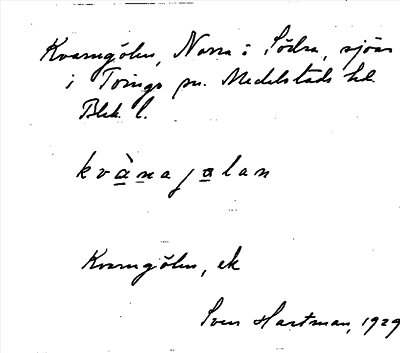 Kvarngölen, Norra o Södra, sjöar
i Tvings sn. Medelstads hd.
Blek. l.
kvànajalan
Kvarngölen, ek
Sven Hartman, 1929